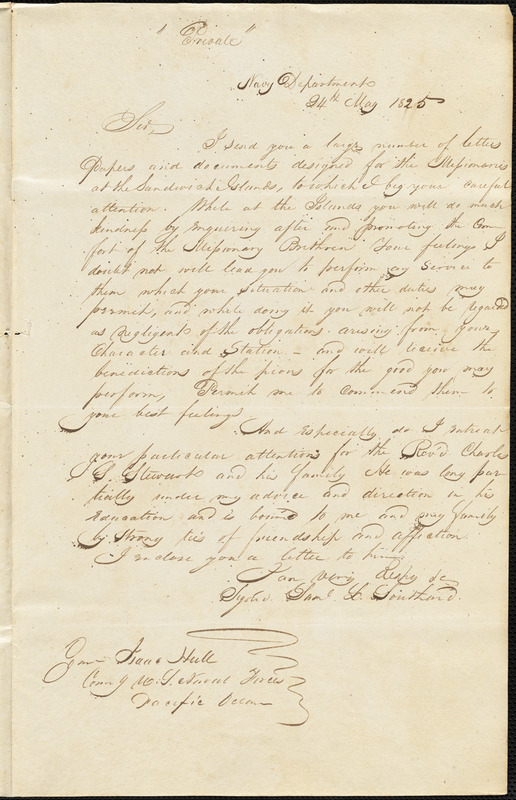 "Private"
Navy Department
24th May 1825
Sir,
I send you a large number of letters
Papers and documents designed for the Missionaries
at the Sandwich Islands, to which I beg your careful
attention. While at the Islands you will do much
kindness by enquiring after and promoting the Com
fort of the Missionary Brethren. Your feelings I
doubt not will lead you to perform any Service to
them which your situation and other duties may
permit, and while doing it you will not be regarded
as negligent of the obligations arising from your
Character and Station – and will receive the
benedictions of the pious for the good you may
perform, Permit me to commend them to
your best feelings
And Especially do I intreat
your particular attention for the Revd. Charles
S. Stewart and his family He was long par
tially under my advice and direction in his
Education and is bound to me and my family
by strong ties of friendship and affection
I enclose you a letter to him
I am Very Respy &c
Signed Saml. L. Southard.
Isaac Hull
Comg U. S. Naval Forces
Pacific Ocean